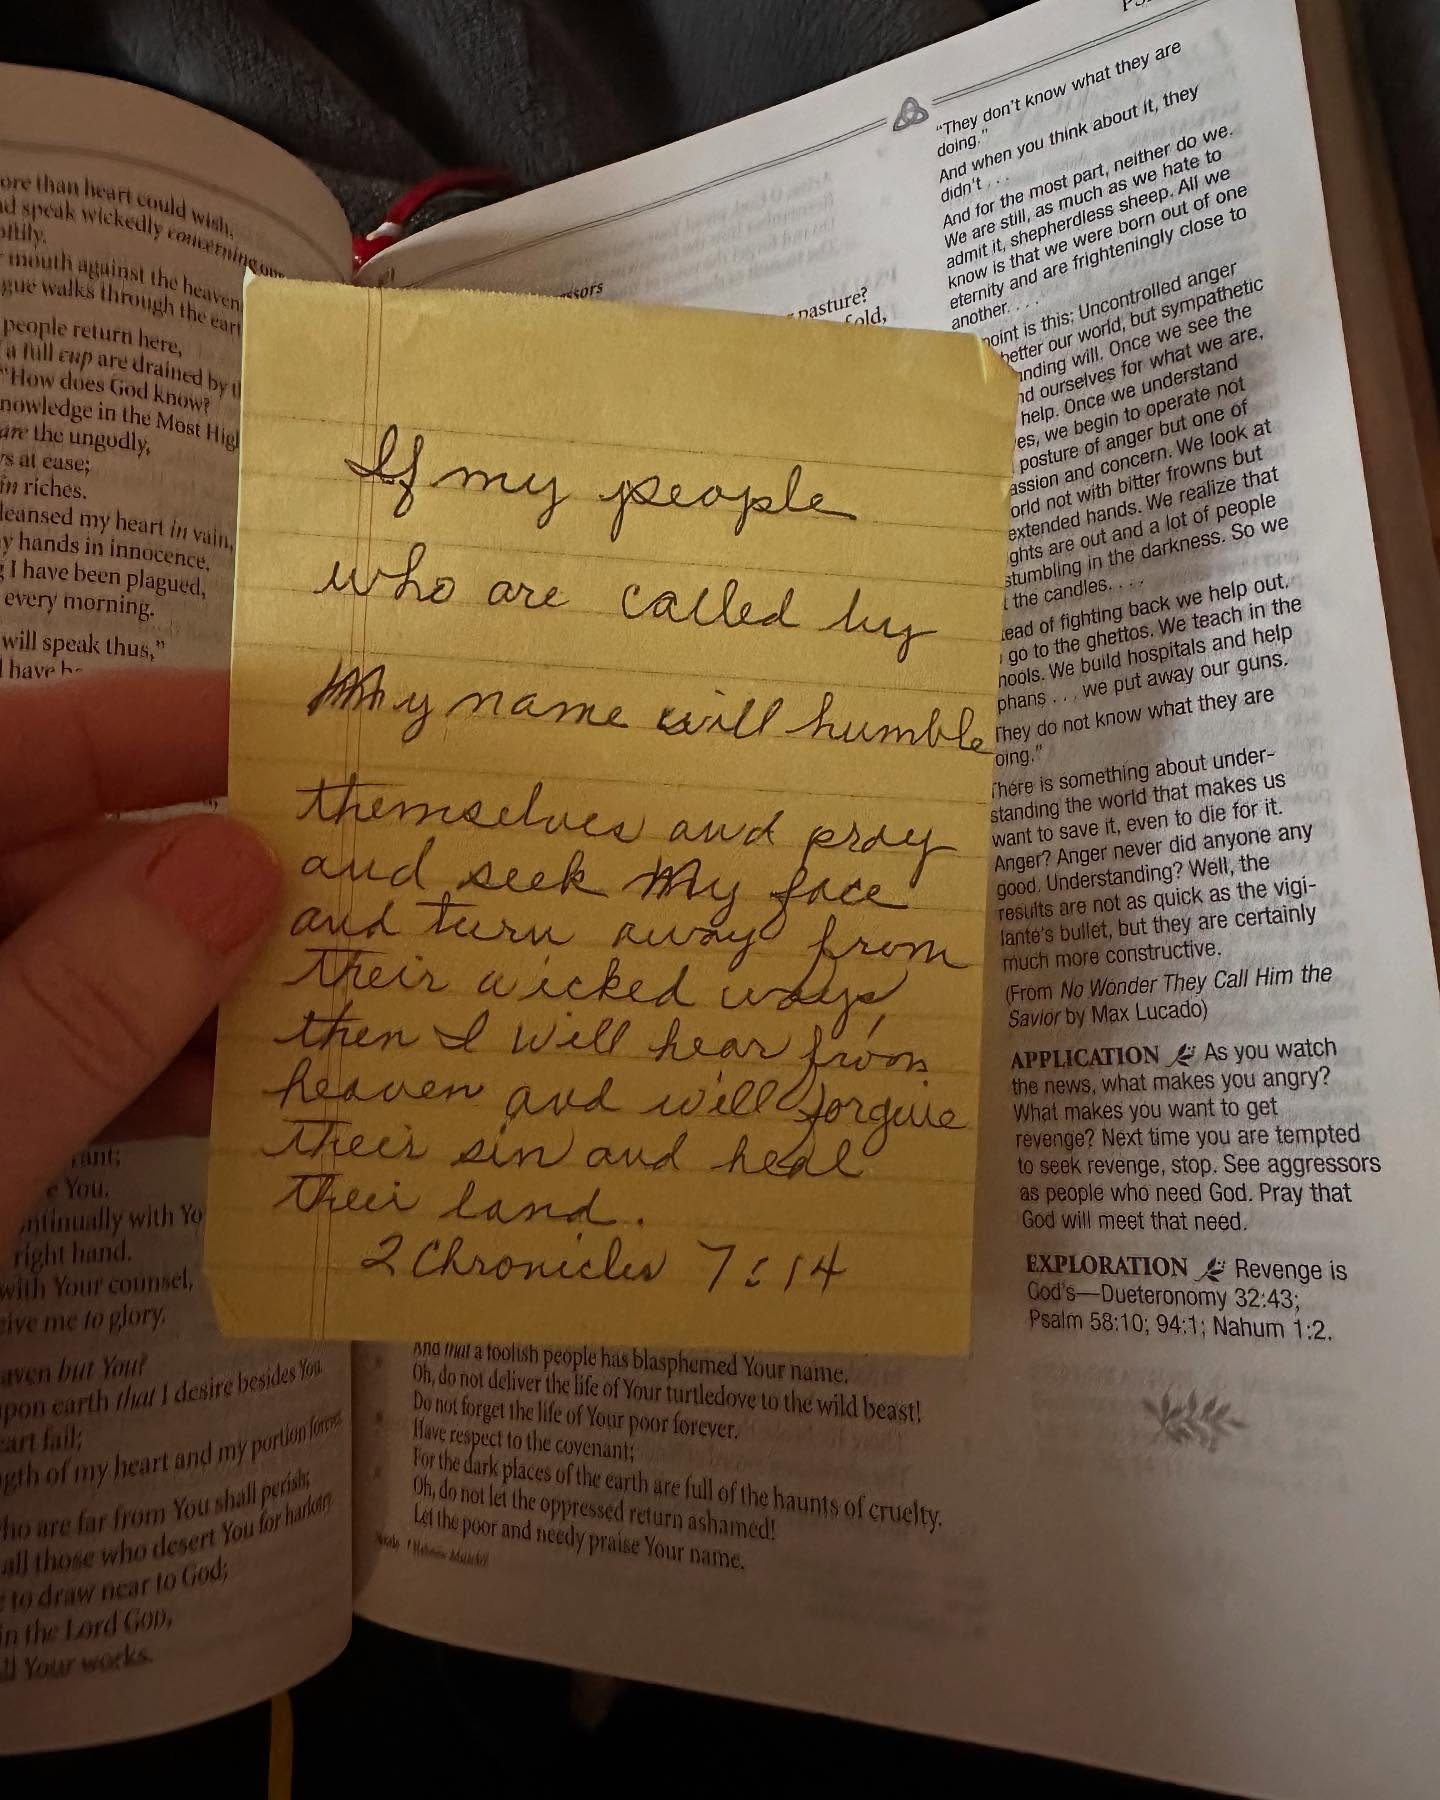 ore than heart could wish.
d speak wickedly concerning
oftily.
mouth against the heaven
gue walks through the eart
people return here,
a full cup are drained by
"How does God know?
nowledge in the Most High
are the ungodly,
s at ease;
in riches.
leansed my heart in vain,
y hands in innocence.
I have been plagued,
every morning.
will speak thus,"
I have
e You.
ntinually with Yo
right hand.
with Your counsel,
eive me to glory.
aven but You?
pon earth that I desire besides You.
eart fail;
gth of my heart and my portion forever.
ho are far from You shall perish;
all those who desert You for harlotry.
to draw near to God;
in the Lord GOD,
ll Your works.
If my people
who are called by
My name will humble
themselves and pray
and seek My face
and turn away from
their wicked ways,
then I will hear from
heaven and will forgive
their sin and heal
their land.
2 Chronicles 7:14
pasture?
old,
And that a foolish people has blasphemed Your name.
Oh, do not deliver the life of Your turtledove to the wild beast!
Do not forget the life of Your poor forever.
Have respect to the covenant;
For the dark places of the earth are full of the haunts of cruelty.
Oh, do not let the oppressed return ashamed!
Let the poor and needy praise Your name.
"They don't know what they are
doing."
And when you think about it, they
didn't . . .
And for the most part, neither do we.
We are still, as much as we hate to
admit it, shepherdless sheep. All we
know is that we were born out of one
eternity and are frighteningly close to
another. . . .
point is this: Uncontrolled anger
better our world, but sympathetic
nding will. Once we see the
nd ourselves for what we are,
help. Once we understand
es, we begin to operate not
posture of anger but one of
assion and concern. We look at
orld not with bitter frowns but
extended hands. We realize that
ghts are out and a lot of people
stumbling in the darkness. So we
t the candles. . . .
ead of fighting back we help out.
go to the ghettos. We teach in the
hools. We build hospitals and help
phans . . . we put away our guns.
They do not know what they are
oing."
There is something about under-
standing the world that makes us
want to save it, even to die for it.
Anger? Anger never did anyone any
good. Understanding? Well, the
results are not as quick as the vigi-
lante's bullet, but they are certainly
much more constructive.
(From No Wonder They Call Him the
Savior by Max Lucado)
APPLICATION As you watch
the news, what makes you angry?
What makes you want to get
revenge? Next time you are tempted
to seek revenge, stop. See aggressors
as people who need God. Pray that
God will meet that need.
EXPLORATION Revenge is
God's—Dueteronomy 32:43;
Psalm 58:10; 94:1; Nahum 1:2.